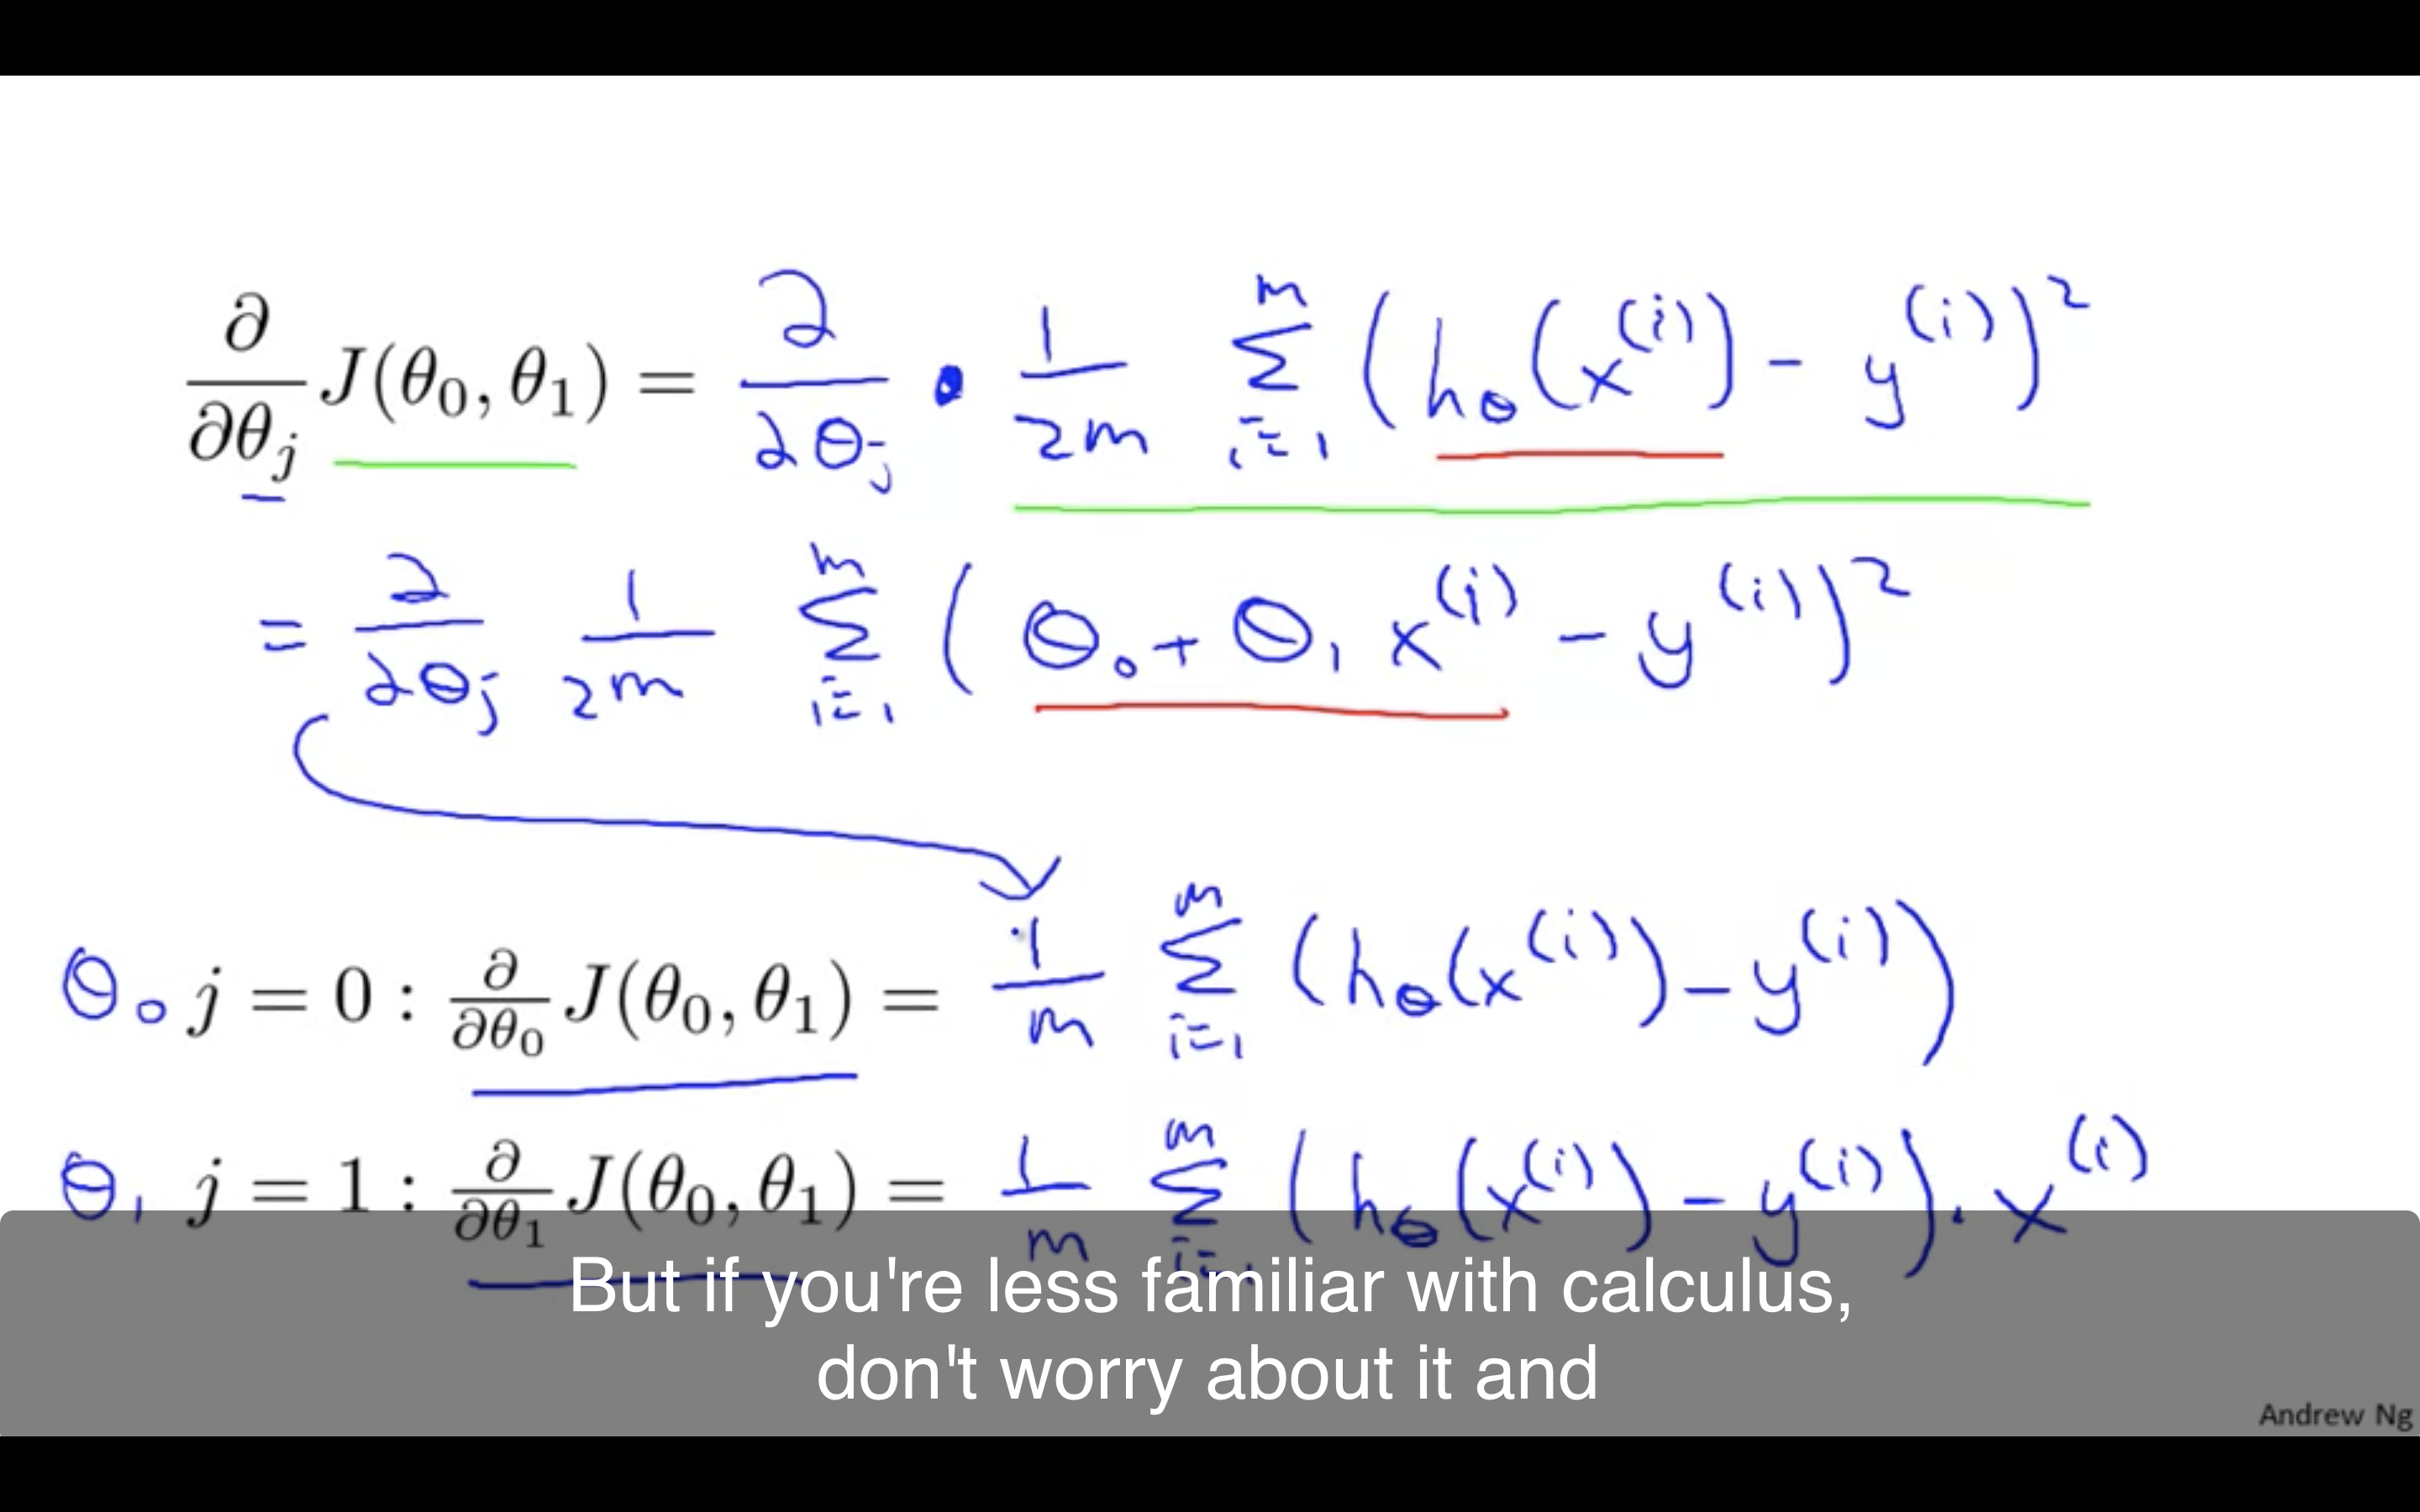 ∂/∂θ_j J(θ_0, θ_1) = ∂/∂θ_j · 1/2m Σ_{i=1}^{m} (h_θ(x^(i)) - y^(i))^2
= ∂/∂θ_j 1/2m Σ_{i=1}^{m} (θ_0 + θ_1 x^(i) - y^(i))^2
θ_0 j = 0 : ∂/∂θ_0 J(θ_0, θ_1) = 1/m Σ_{i=1}^{m} (h_θ(x^(i)) - y^(i))
θ_1 j = 1 : ∂/∂θ_1 J(θ_0, θ_1) = 1/m Σ_{i=1}^{m} (h_θ(x^(i)) - y^(i)) · x^(i)
But if you're less familiar with calculus,
don't worry about it and
Andrew Ng